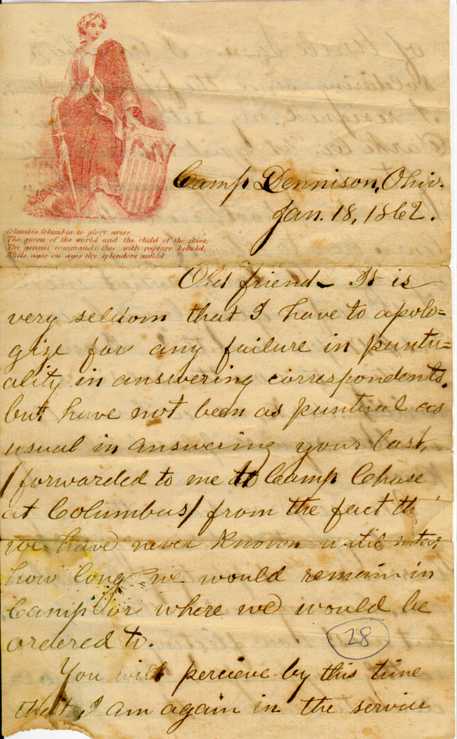 Columbia Columbia to glory arise
The queen of the world and the child of the skies
Thy genius commands thee with rapture behold,
While ages on ages thy splendors unfold
Camp Dennison, Ohio.
Jan. 18, 1862.
Old friend - It is
very seldom that I have to apolo-
gize for any failure in puntu-
ality in answering correspondents,
but have not been as puntual as
usual in answering your last,
/forwarded to me to Camp Chase
at Columbus/ from the fact th
we have never known until
how long we would remain in
Camp or where we would be
ordered to.
28
You will percieve by this time
that I am again in the service